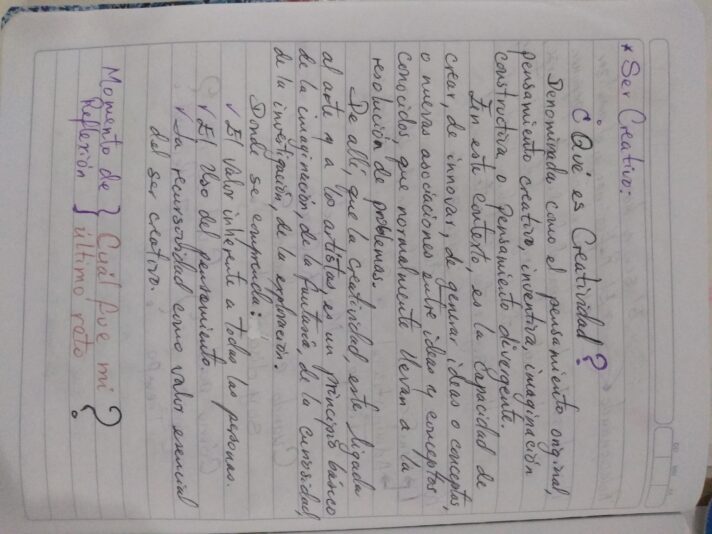 * Ser Creativo:
¿Qué es Creatividad?
Denominada como el pensamiento original,
pensamiento creativo, inventiva, imaginación
constructiva, o pensamiento divergente.
En este contexto, es la capacidad de
crear, de innovar, de generar ideas o conceptos,
o nuevas asociaciones entre ideas y conceptos
conocidos, que normalmente llevan a la
resolución de problemas.
De allí, que la creatividad, este ligada
al arte y a los artistas es un principio básico
de la imaginación, de la fantasía, de la curiosidad,
de la investigación, de la exploración.
Donde se comprenda:
✓ El valor inherente a todas las personas.
✓ El Uso del pensamiento.
✓ La recursividad como valor esencial
del ser creativo.
Momento de } Cuál fue mi
Reflexión } último reto ?